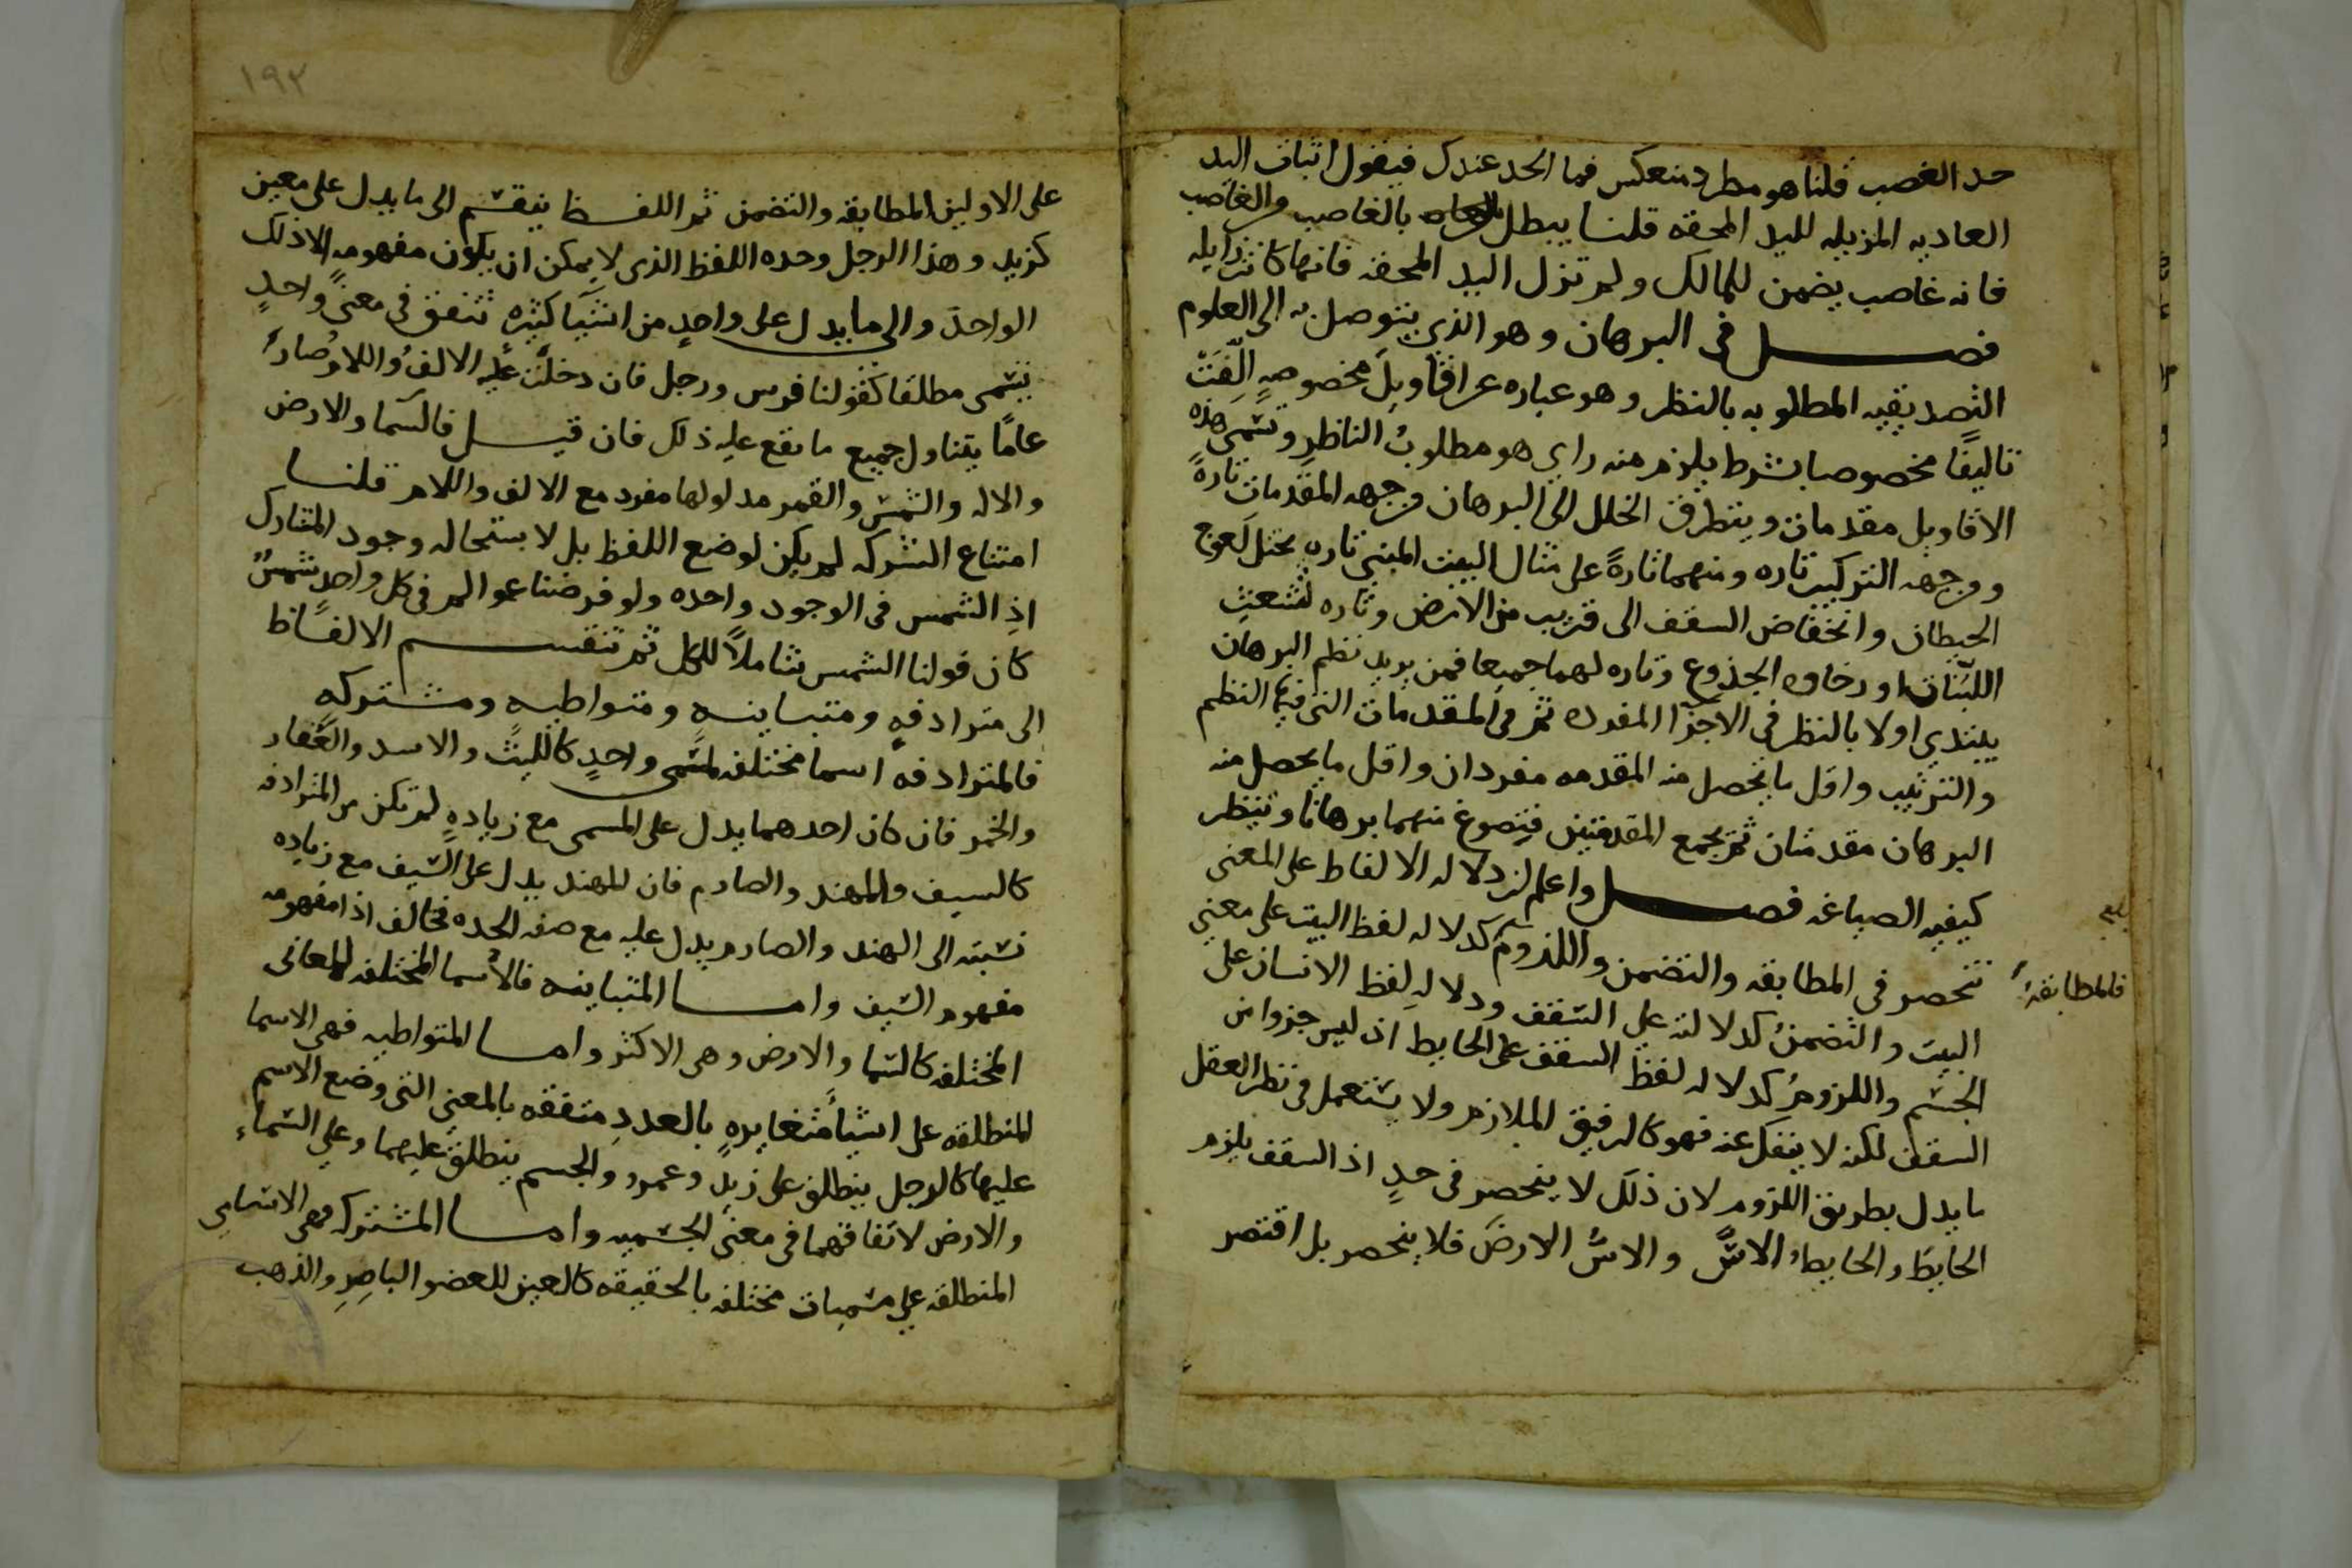 حد الغصب قلنا هو مطرد منعكس فما الحد عندك فيقول اثبات اليد
العاديه المزيله لليد المحقه قلنا يبطل بالغاصب والغاصب
فانه غاصب يضمن للمالك ولم تزل اليد المحقه فانها كانت زايله
فصل في البرهان وهو الذي يتوصل به الى العلوم
التصديقيه المطلوبه بالنظر وهو عباره عن اقاويل مخصوصه الّفت
تاليفًا مخصوصا بشرط يلزم منه راي هو مطلوبُ الناظر وتسمى هذه
الاقاويل مقدمات ويتطرق الخلل الى البرهان من جهه المقدمات تارةً
ومن جهه التركيب تاره ومنهما تارةً على مثال البيت المبني تاره يختل لعوج
الحيطان وانخفاض السقف الى قريب من الارض وتاره لتشعث
اللبنات او رخاوه الجذوع وتاره لهما جميعا فمن يريد نظم البرهان
يبتدي اولا بالنظر في الاجزآ المفرده ثم في المقدمات التي فيها النظم
والترتيب واقل ما يحصل منه المقدمه مفردان واقل ما يحصل منه
البرهان مقدمتان ثم يجمع المقدمتين فيصوغ منهما برهانا وينظر
كيفيه الصياغه فصل واعلم ان دلاله الالفاظ على المعنى
تنحصر في المطابقه والتضمن واللزوم كدلاله لفظ البيت على معنى
فالمطابقهُ
البيت والتضمنُ كدلالته على السقف ودلاله لفظ الانسان على
الجسم واللزومُ كدلاله لفظ السقف على الحايط اذ ليس جزوا من
السقف لكنه لا ينفك عنه فهو كالرفيق الملازم ولا يستعمل في نظر العقل
ما يدل بطريق اللزوم لان ذلك لا ينحصر في حدٍ اذ السقف يلزم
الحايطَ والحايطُ الاسَّ والاسُّ الارضَ فلا ينحصر بل اقتصر
١٩٢
على الاولين المطابقه والتضمن ثم اللفظ ينقسم الى ما يدل على معين
كزيد وهذا الرجل وحده اللفظ الذي لا يمكن ان يكون مفهومه الا ذلك
الواحد والى ما يدل على واحدٍ من اشيا كثيره تتفق في معنًى واحدٍ
يسمى مطلقا كقولنا فرس ورجل فان دخلت عليه الالفُ واللام صار
عامًا يتناول جميع ما يقع عليه ذلك فان قيل فالسما والارض
والاله والشمس والقمر مدلولها مفرد مع الالف واللام قلنا
امتناع الشركه لم يكن لوضع اللفظ بل لاستحاله وجود المشارك
اذِ الشمس في الوجود واحده ولو فرضنا عوالم في كل واحدٍ شمسٌ
كان قولنا الشمس شاملاً للكل ثم تنقسم الالفاظ
الى مترادفهٍ ومتباينهٍ ومتواطيهٍ ومشتركه
فالمترادفه اسما مختلفه لمسمى واحدٍ كالليث والاسد والعُقار
والخمر فان كان احدهما يدل على المسمى مع زيادهٍ لم تكن من المترادفه
كالسيف والمهند والصارم فان المهند يدل على السيف مع زياده
نسبته الى الهند والصارم يدل عليه مع صفه الحده فخالف اذا مفهومه
مفهوم السيف واما المتباينه فالاسما المختلفه للمعاني
المختلفه كالسما والارض وهي الاكثر واما المتواطيه فهي الاسما
المنطلقه على اشيآ متغايرهٍ بالعددِ متفقه بالمعنى التي وضع الاسم
عليها كالرجل ينطلق على زيدٍ وعمرو والجسم ينطلق عليهما وعلى السماء
والارض لاتفاقهما في معنى الجسميه واما المشتركه فهي الاسامي
المنطلقه على مسميات مختلفه بالحقيقه كالعين للعضو الباصِرِ والذهب